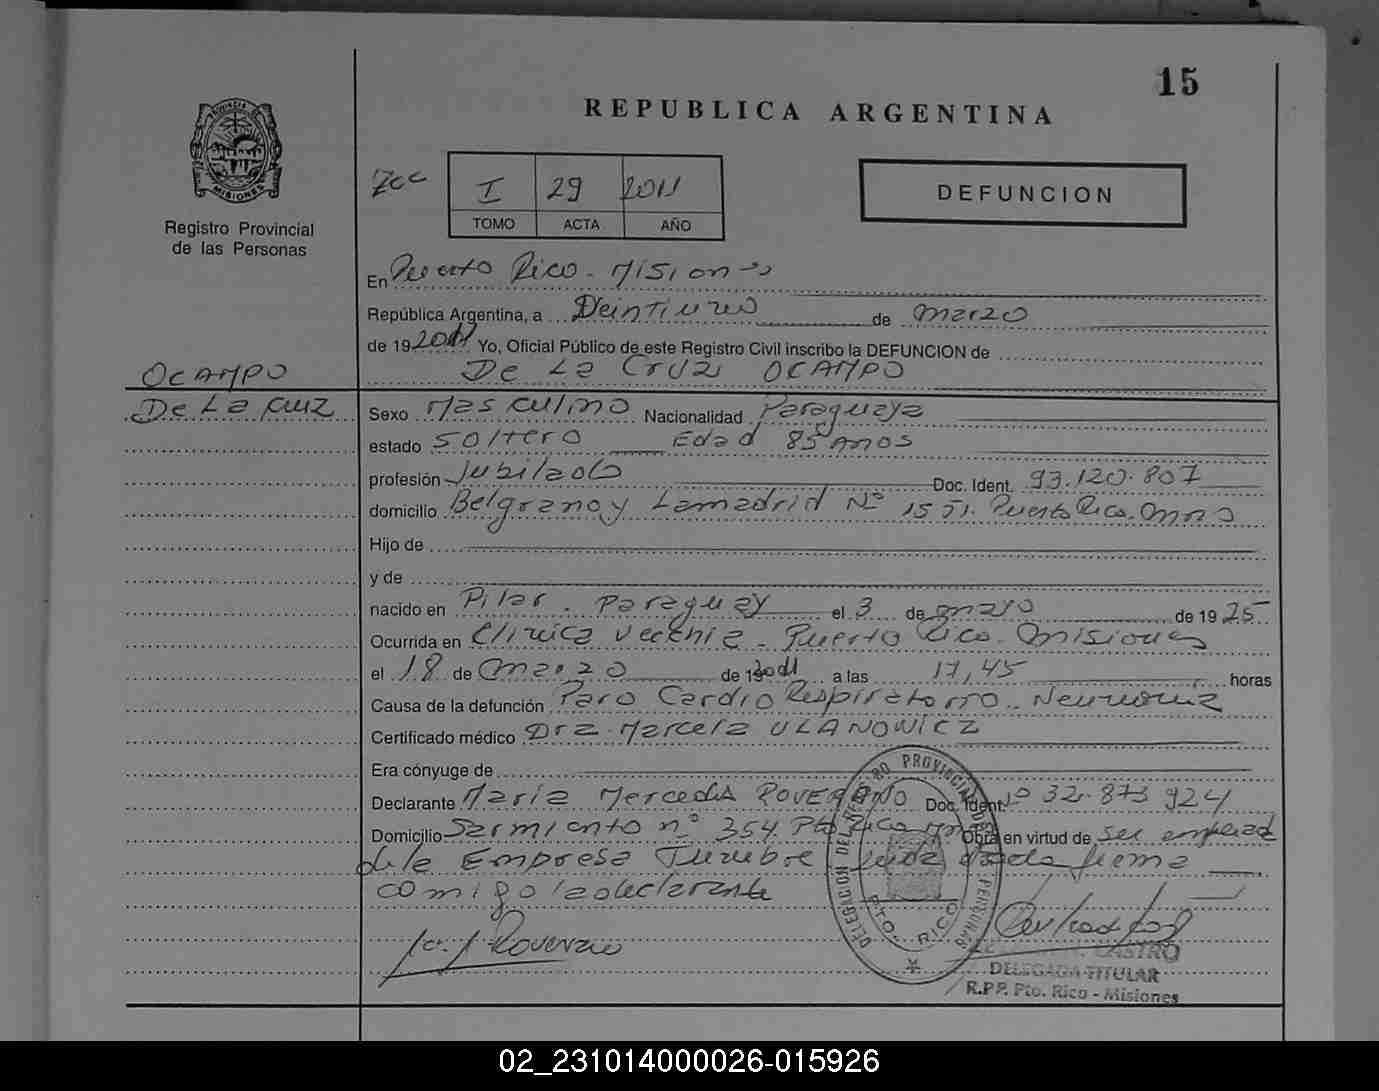 15
REPUBLICA ARGENTINA
PROVINCIA DE
MISIONES
Registro Provincial
de las Personas
I 29 2011
TOMO ACTA AÑO
DEFUNCION
En Puerto Rico - Misiones
República Argentina, a Veintiuno de marzo
de 192011 Yo, Oficial Público de este Registro Civil inscribo la DEFUNCION de
De La Cruz OCAMPO
OCAMPO
De La Cruz
Sexo Masculino Nacionalidad Paraguaya
estado Soltero Edad 85 años
profesión Jubilado Doc. Ident. 93.120.807
domicilio Belgrano y Lamadrid Nº 1551. Puerto Rico. Mnes
Hijo de
y de
nacido en Pilar. Paraguay el 3 de mayo de 1925
Ocurrida en Clinica Vecchia - Puerto Rico. Misiones
el 18 de marzo de 192011 a las 17,45 horas
Causa de la defunción Paro Cardio Respiratorio. Neumonia
Certificado médico Dra. Marcela ULANOWICZ
Era cónyuge de
Declarante Maria Mercedes ROVERANO Doc. Ident. 32.873 924
Domicilio Sarmiento nº 354. Pto Rico Obra en virtud de ser emplead
de la Empresa Funebre Leida firma
comigo la declarante
DELEGACION DEL REGISTRO PROVINCIAL DE LAS PERSONAS
PTO. RICO
CASTRO
DELEGADA TITULAR
R.P.P. Pto. Rico - Misiones
02_231014000026-015926